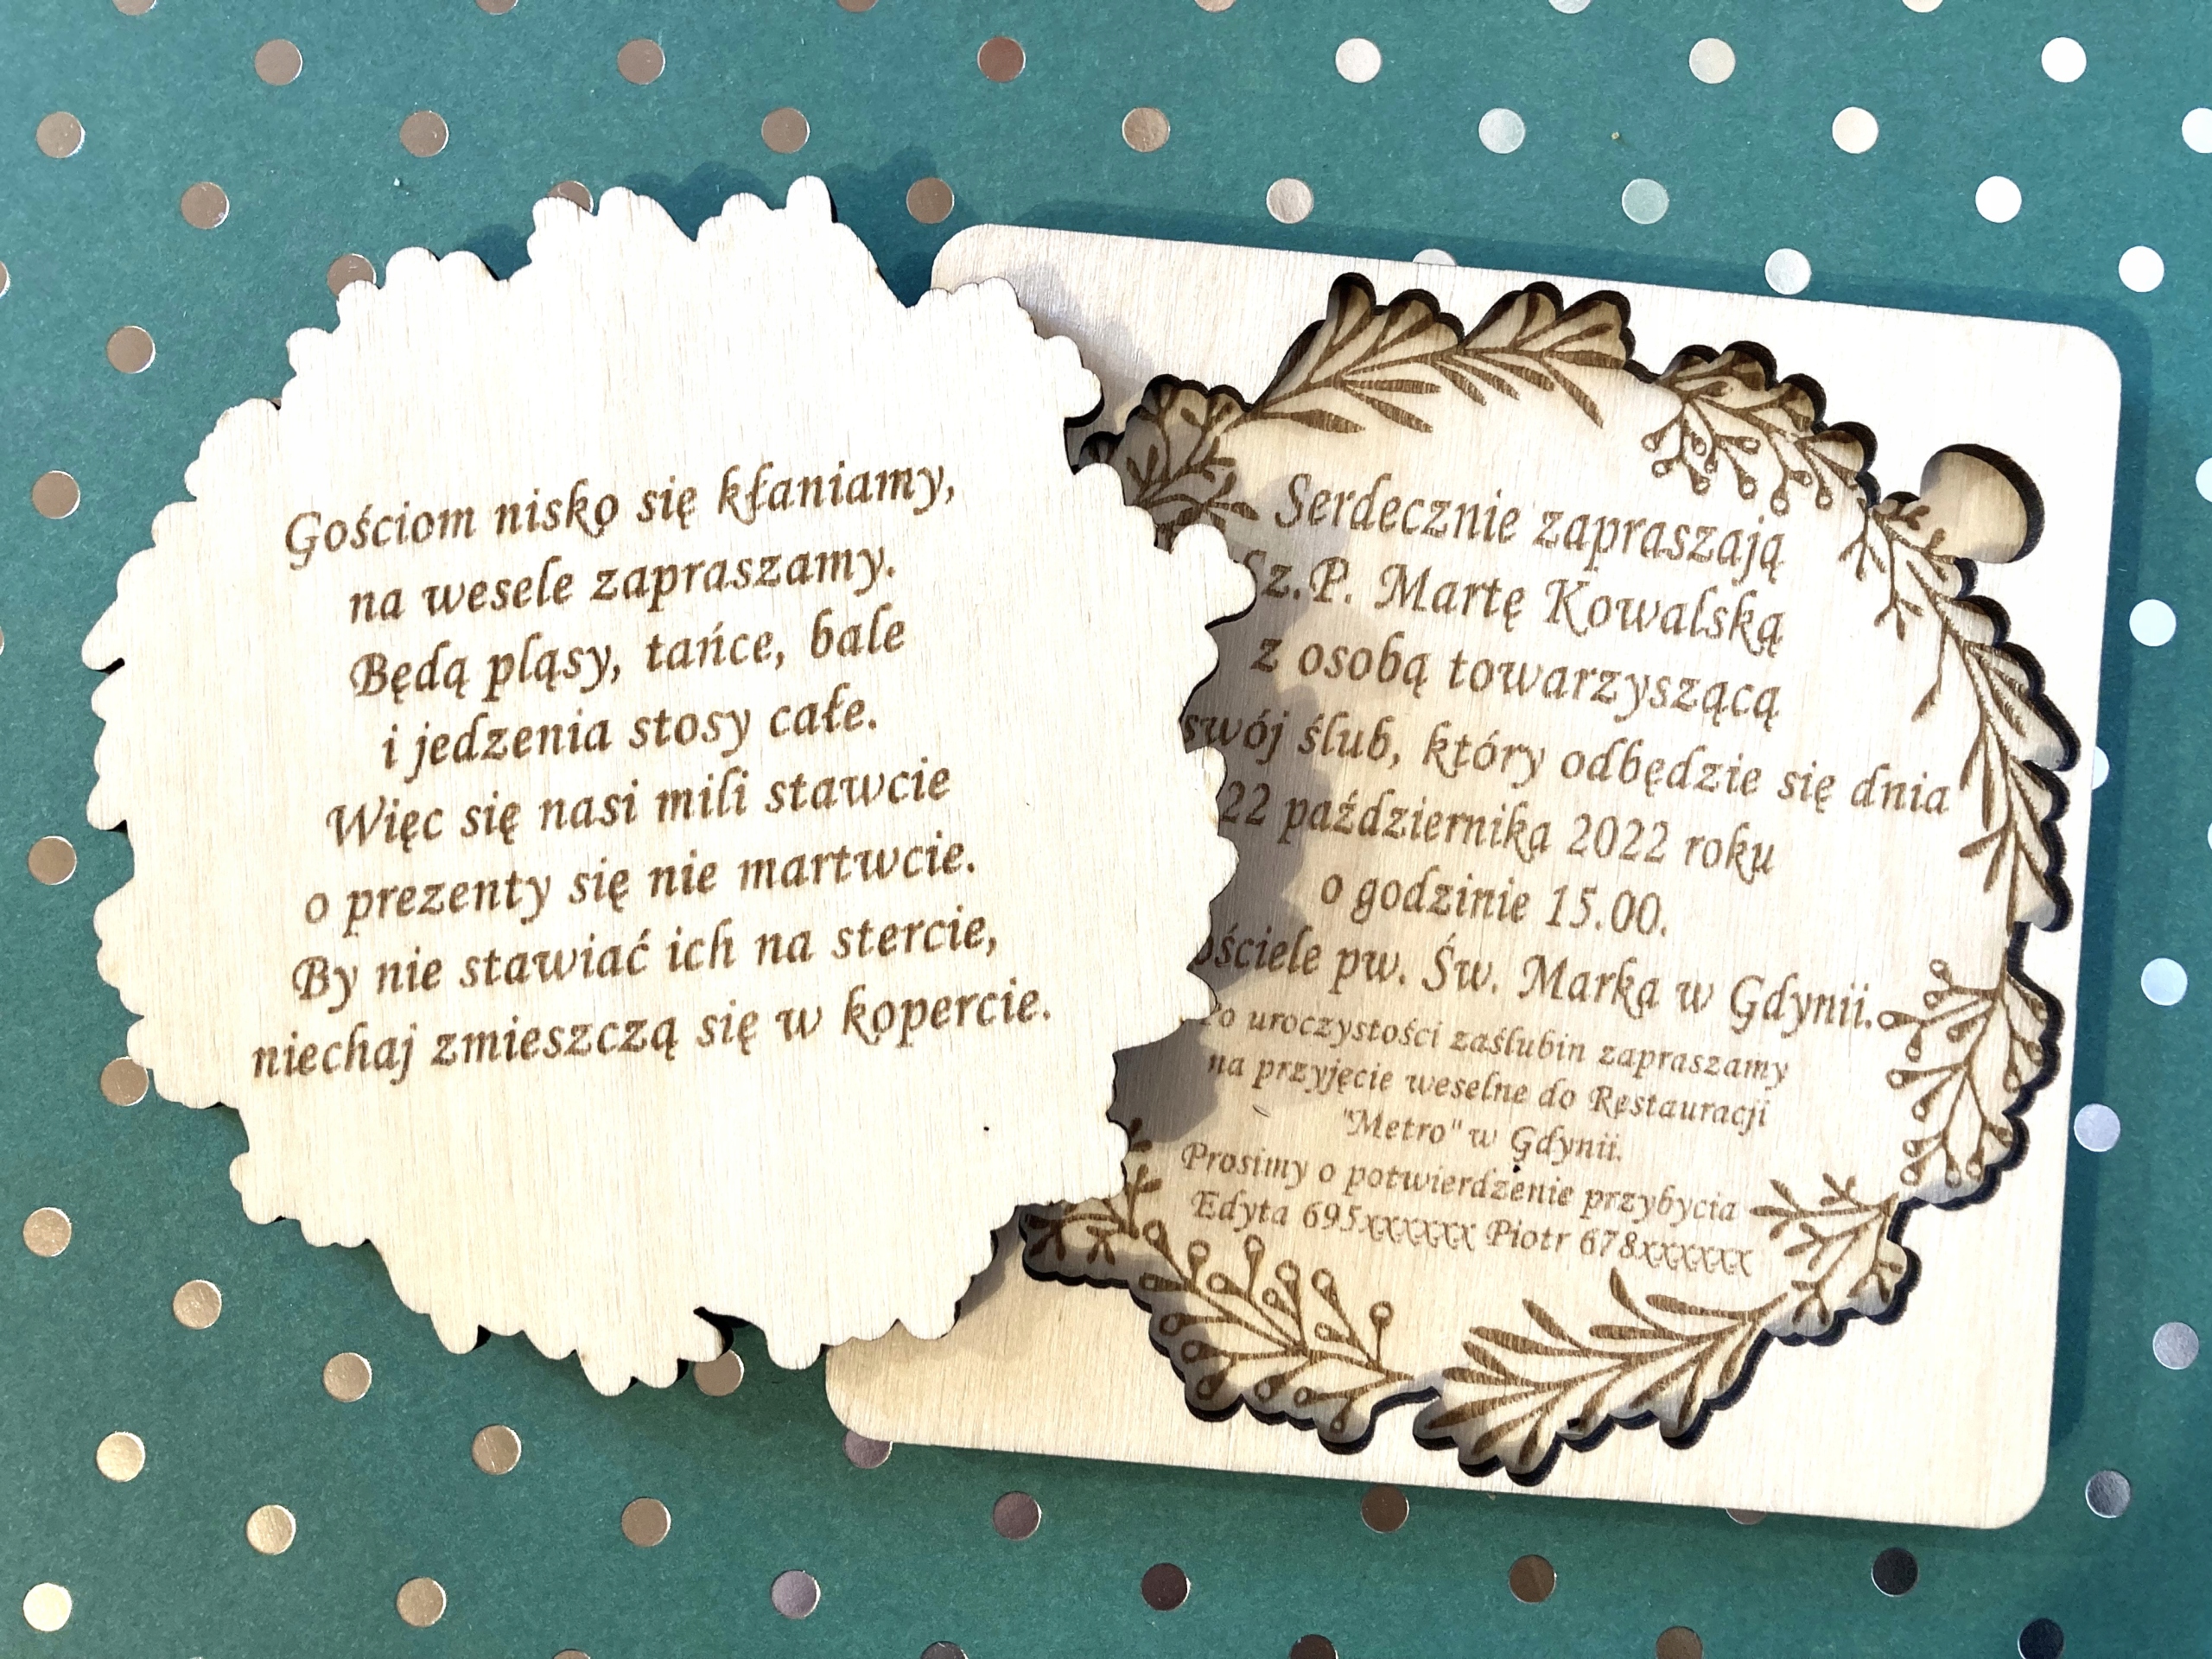 Gościom nisko się kłaniamy,
na wesele zapraszamy.
Będą pląsy, tańce, bale
i jedzenia stosy całe.
Więc się nasi mili stawcie
o prezenty się nie martwcie.
By nie stawiać ich na stercie,
niechaj zmieszczą się w kopercie.
Serdecznie zapraszają
Sz.P. Martę Kowalską
z osobą towarzyszącą
swój ślub, który odbędzie się dnia
22 października 2022 roku
o godzinie 15.00.
pw. Św. Marka w Gdynii.
Po uroczystości zaślubin zapraszamy
na przyjęcie weselne do Restauracji
"Metro" w Gdynii.
Prosimy o potwierdzenie przybycia
Edyta 695xxxxxx Piotr 678xxxxxx